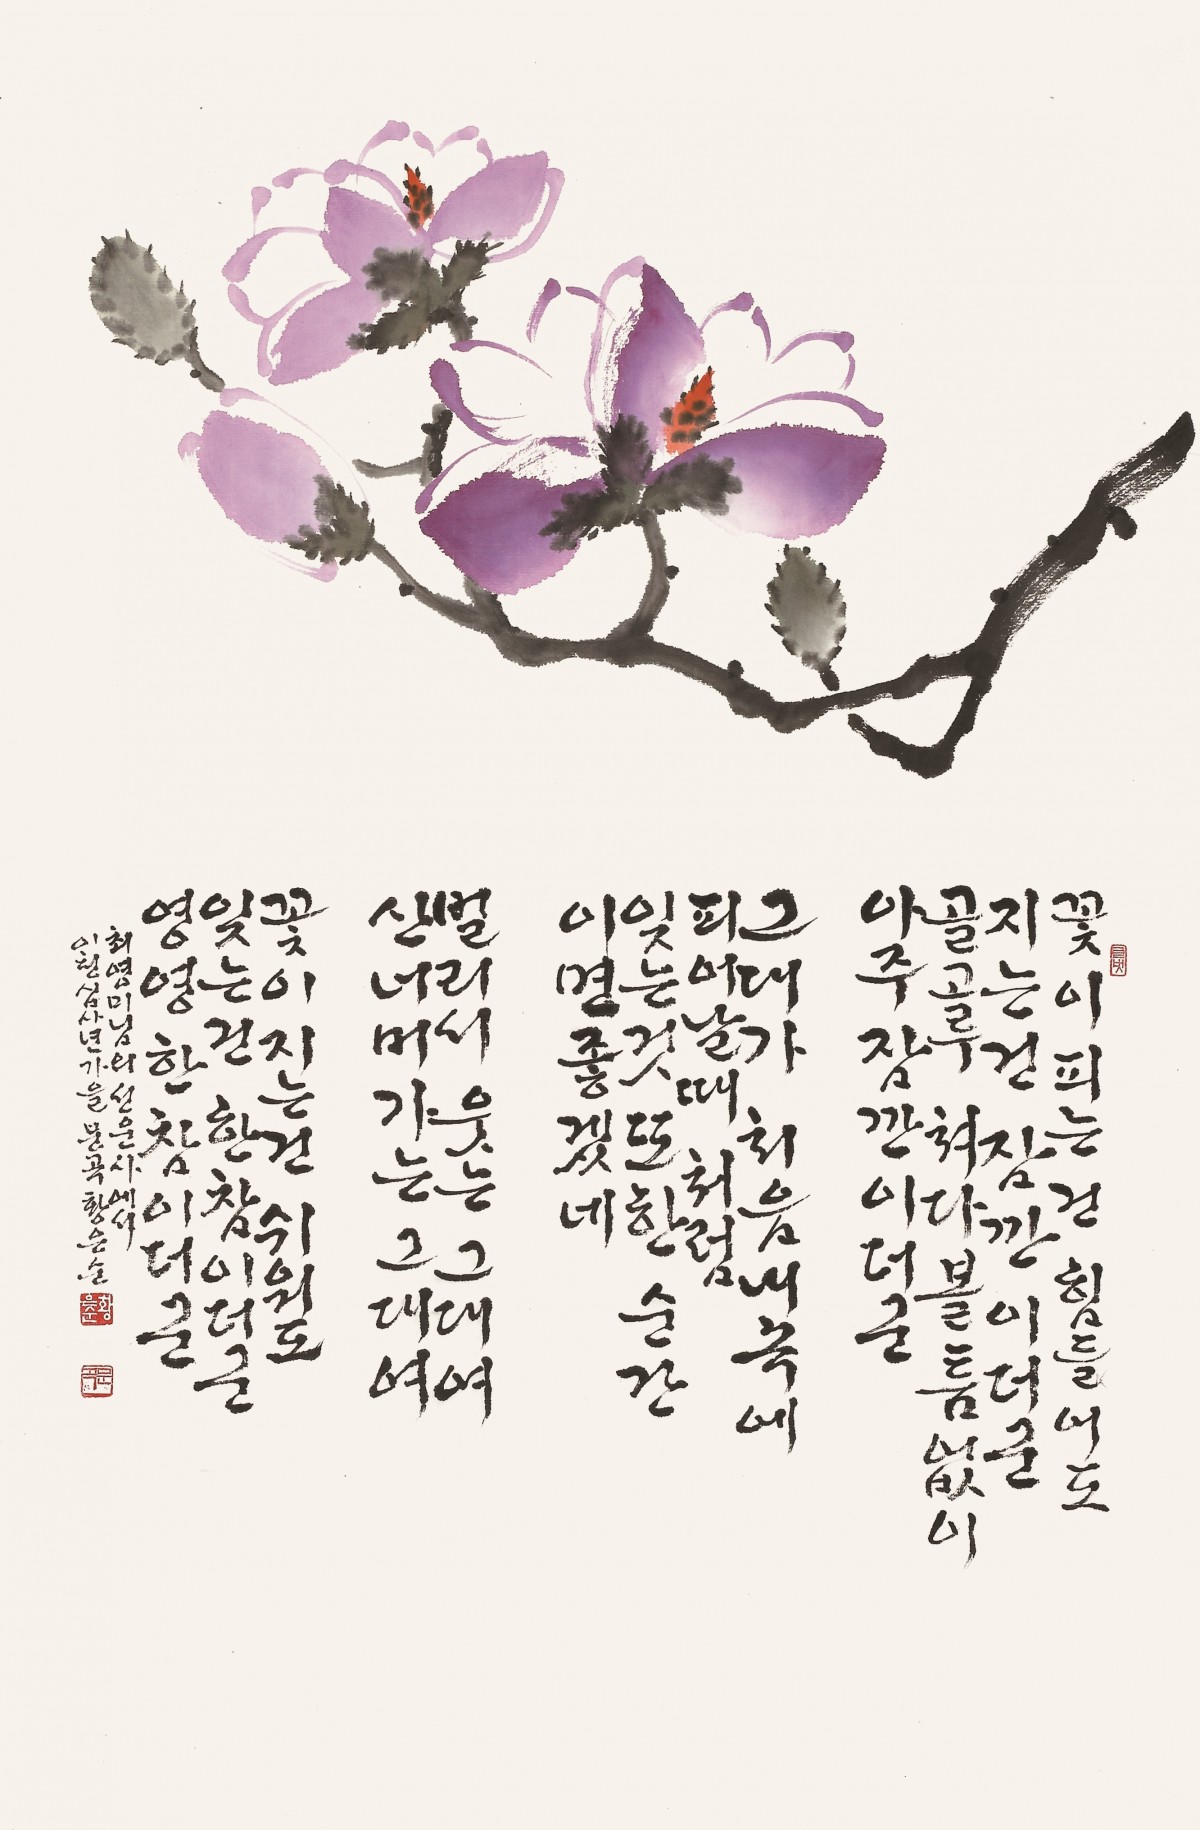 꽃이 피는건 힘들어도
지는건 잠깐이더군
골골루 쳐다볼 틈 없이
아주 잠깐이더군
그대가 처음 내 속에
피어날 때 처럼
잊는것 또한 순간
이면 좋겠네
멀리서 웃는 그대여
산너머 가는 그대여
꽃이 지는건 쉬워도
잊는건 한참이더군
영영 한참이더군
최영미님의 선운사에서
이천십사년 가을 문곡 황은순